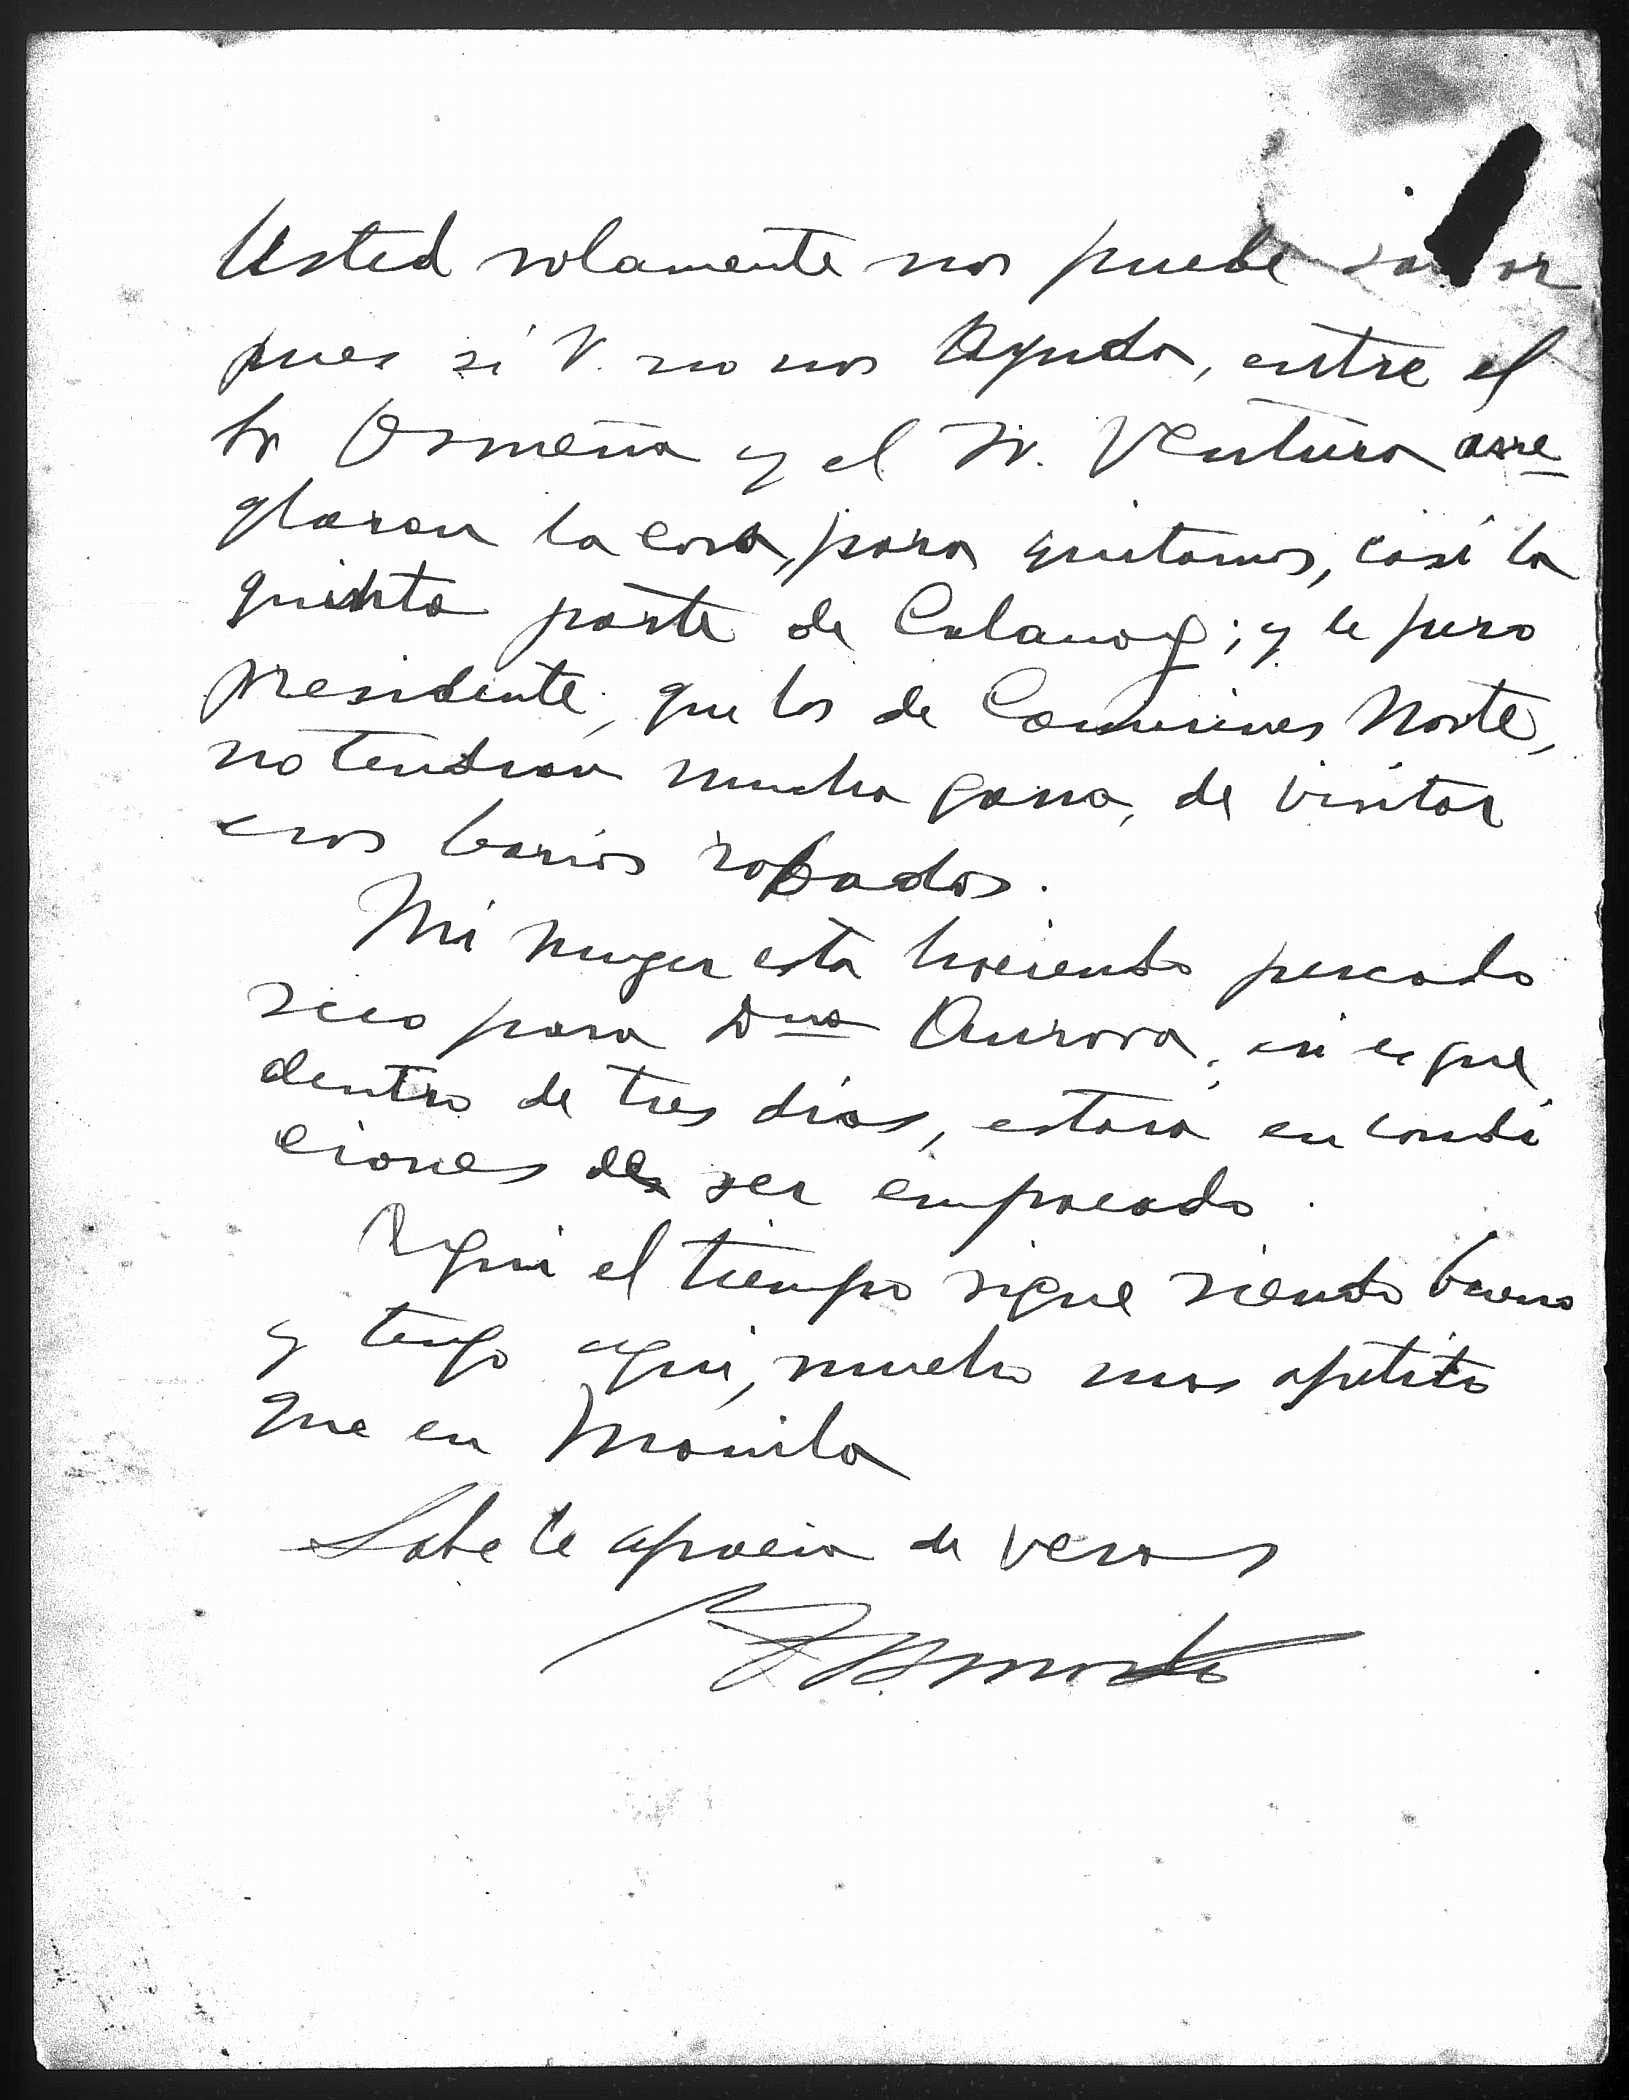 Usted solamente nos puede
pues si V. no nos Ayuda, entre el
Sr Osmeña y el Sr. Ventura arre-
glaran la cosa, para quitarnos, casi la
quinta parte de Calauag; y le juro
presidente, que los de Camarines Norte,
no tendran mucha gana, de visitar
esos barrios robados.
Mi muger esta haciendo pescado
seco para Dña Aurora, y
dentro de tres dias, estara en condi
ciones de ser empacado.
Aqui el tiempo sigue siendo bueno
y tengo aqui, mucho mas apetito
que en Manila
Sabe le aprecia de veras